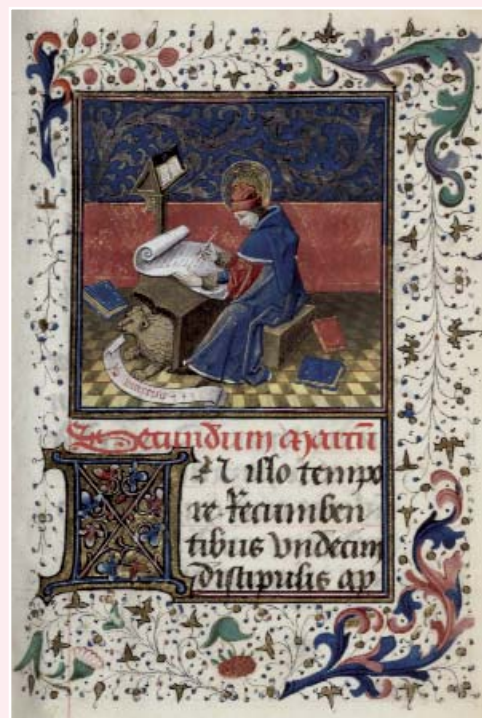 Secundum Marcū
IN illo tempo
re recumben
tibus Vndecim
discipulis ap